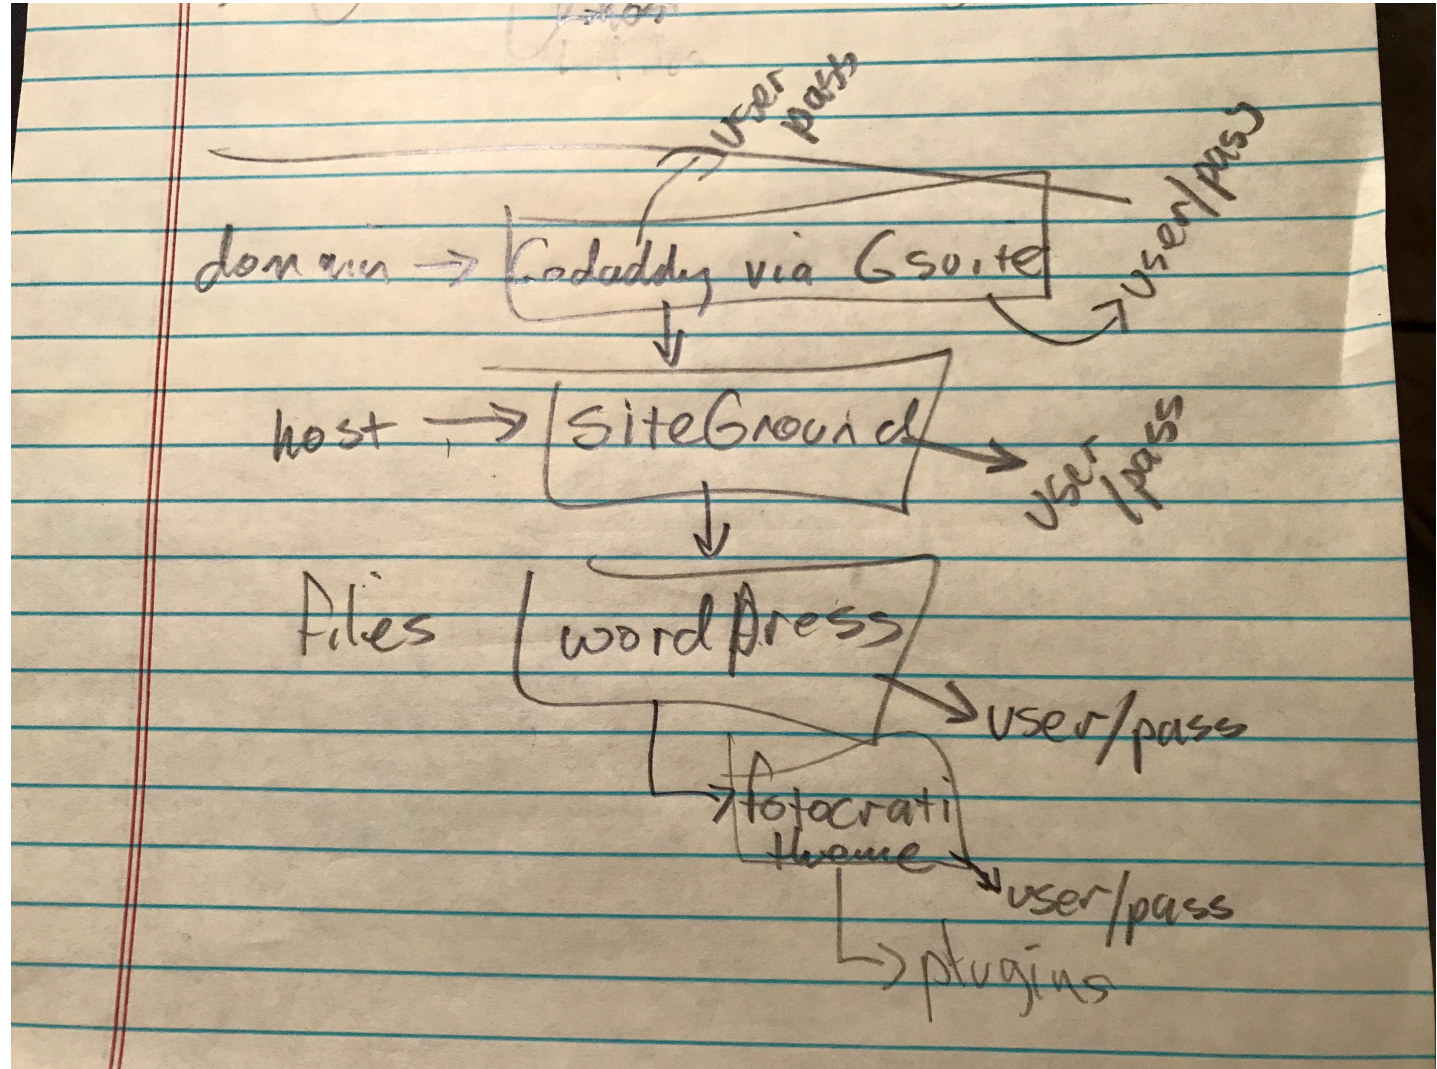 user
pass
user/pass
domain → Godaddy via Gsuite
host → SiteGround
user
/pass
files wordpress
user/pass
fotocrati
theme
user/pass
plugins